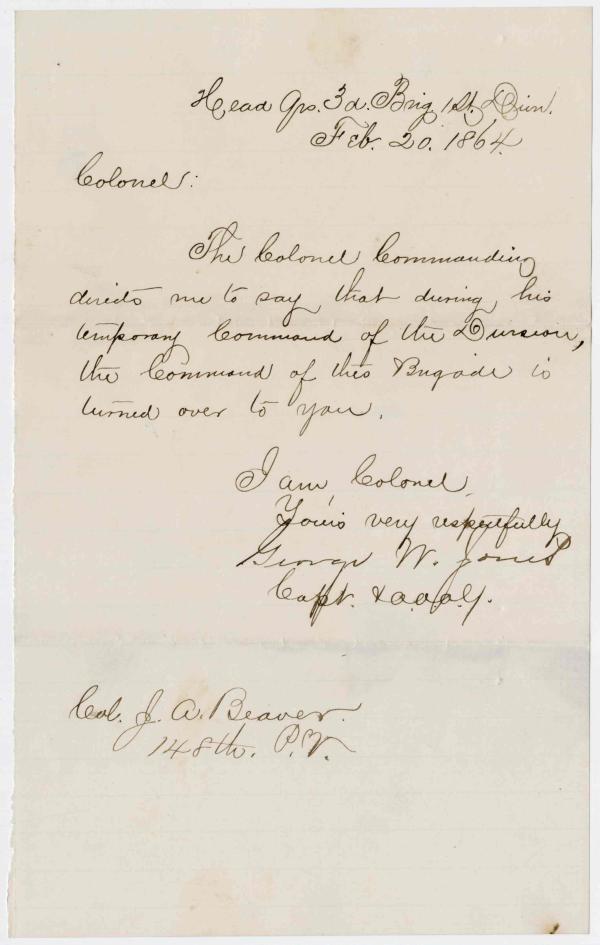 Head Qrs. 3d. Brig 1st. Divn.
Feb. 20. 1864.
Colonel:
The Colonel Commanding
directs me to say that during his
temporary Command of the Division,
the Command of this Brigade is
turned over to you.
I am, Colonel,
Yours very respectfully
George W. Jones
Capt. & A.A.A.G.
Col. J. A. Beaver.
148th. P.V.